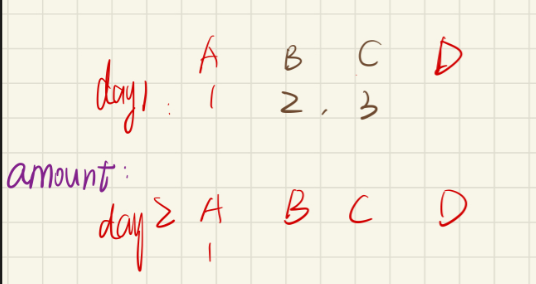 A B C D
day1 : 1 2 , 3
amount:
day2 A B C D
1